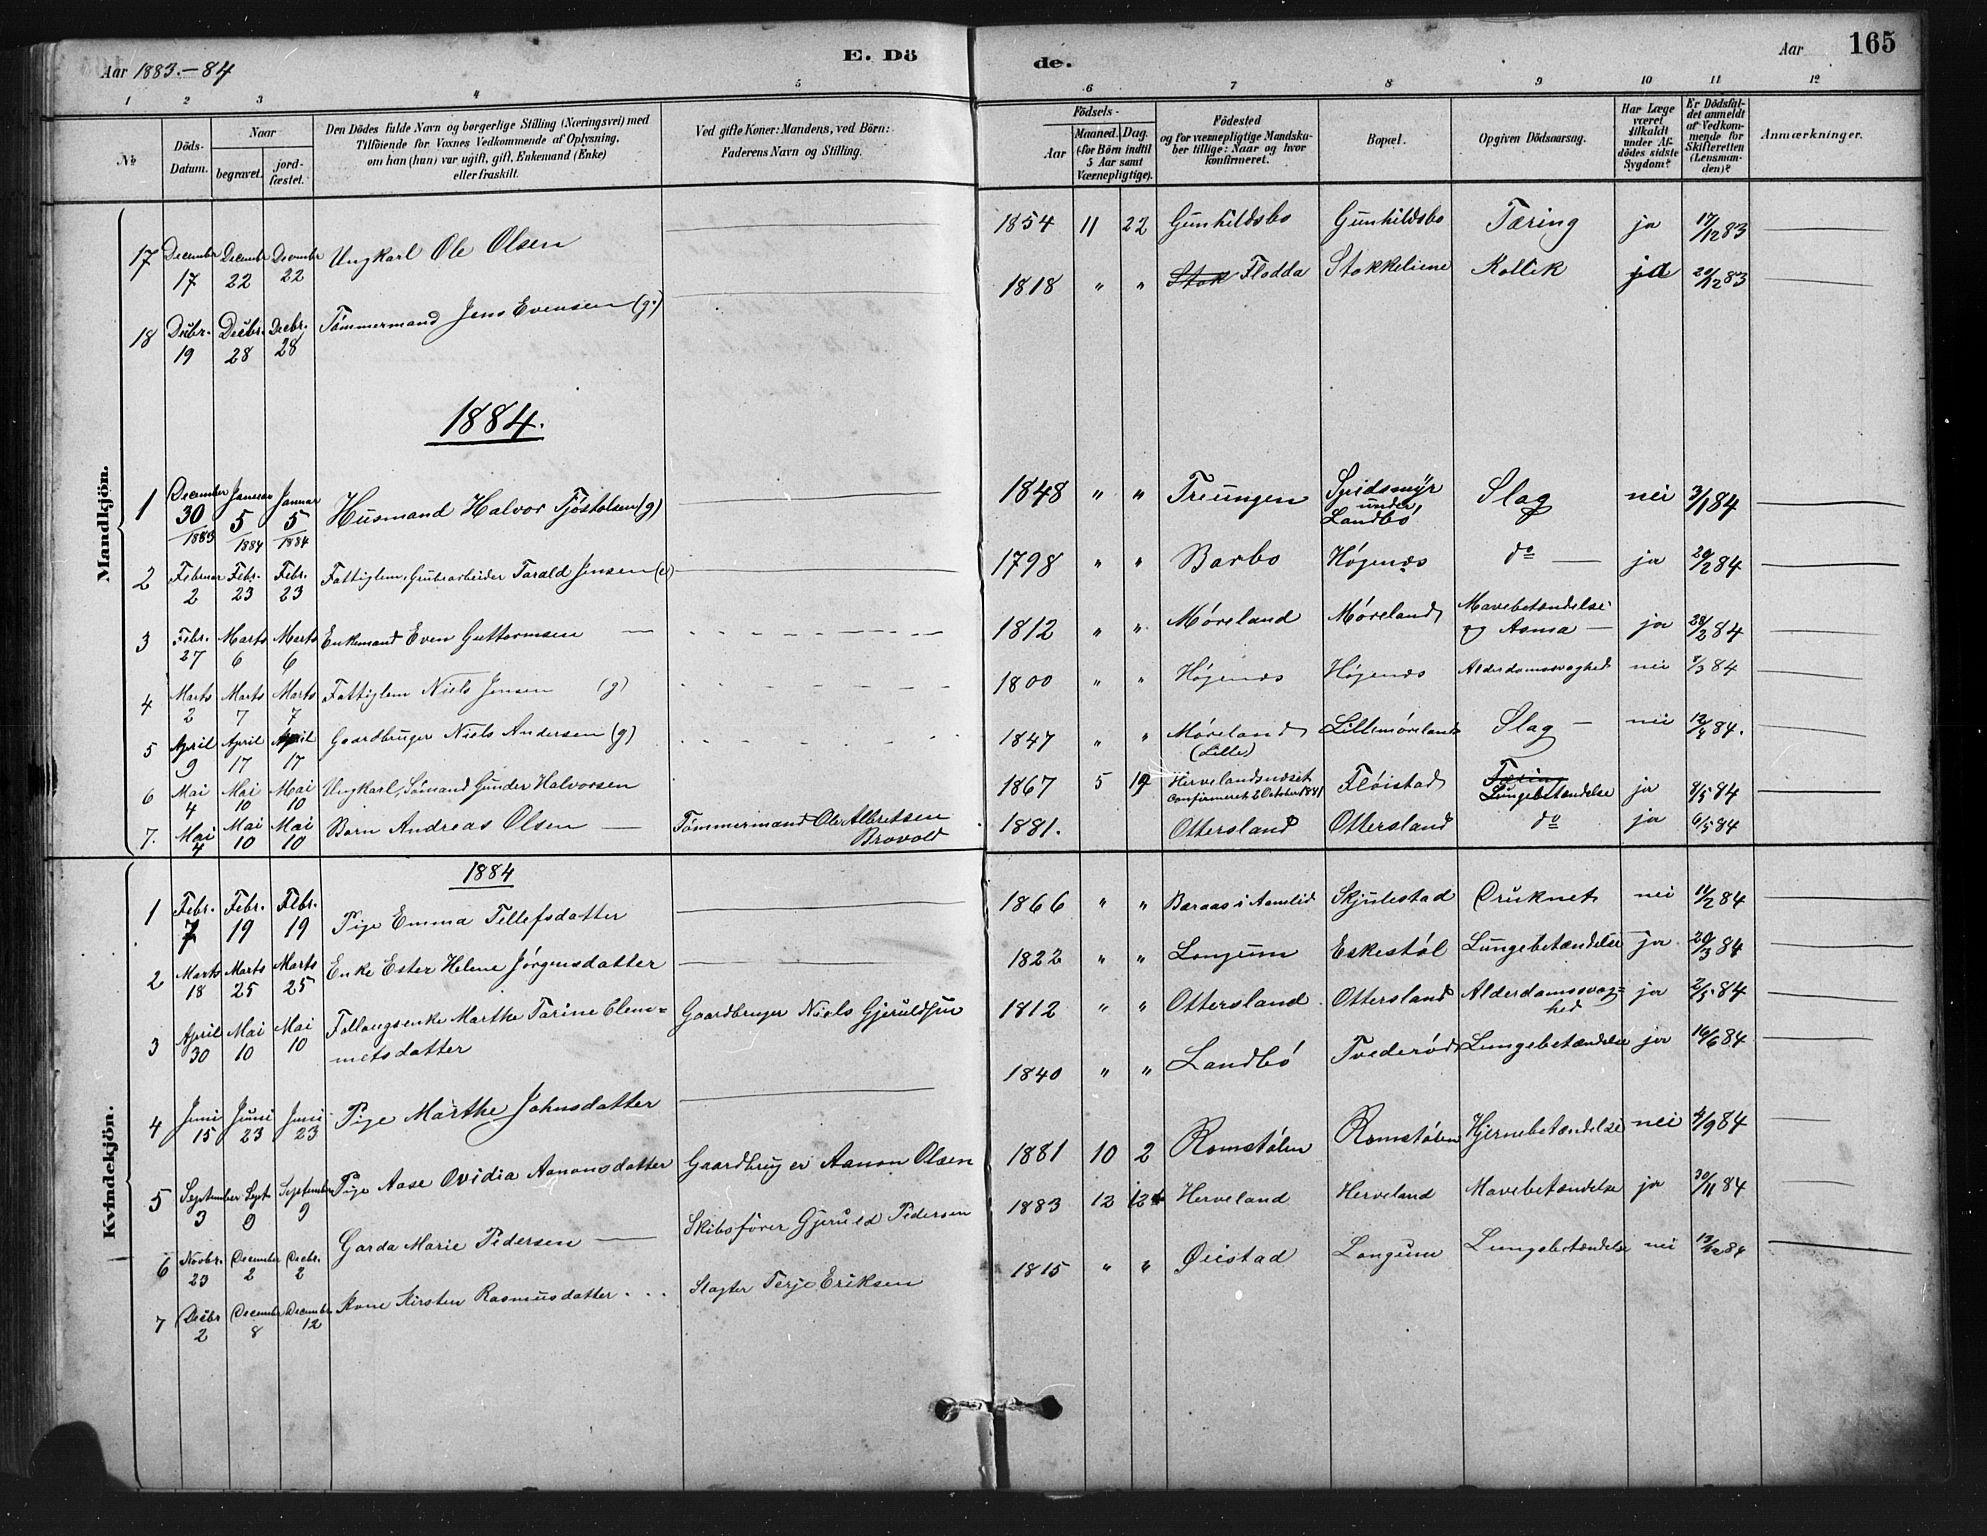 Aar 1883.-84
E. Döde.
Aar
165
1 2 3 4 5 6 7 8 9 10 11 12
№
Döds-Datum.
Naar
begravet.
jordfæstet.
Den Dödes fulde Navn og borgerlige Stilling (Næringsvei) med
Tilföiende for Voxnes Vedkommende af Oplysning,
om han (hun) var ugift, gift, Enkemand (Enke)
eller fraskilt.
Ved gifte Koner: Mandens, ved Börn:
Faderens Navn og Stilling.
Födsels-
Aar
Maaned. Dag.
(for Börn indtil
5 Aar samt
Værnepligtige).
Födested
og for værnepligtige Mandska-
ber tillige: Naar og hvor
konfirmeret.
Bopæl.
Opgiven Dödsaarsag.
Har Læge
været
tilkaldt
under Af-
dödes sidste
Sygdom?
Er Dödsfal-
det anmeldt
af Vedkom-
mende for
Skifteretten
(Lensman-
den)?
Anmærkninger.
Mandkjön.
17 December 17 Decembr 22 Decembr 22 Ungkarl Ole Olsen — 1854 11 22 Gunhildsbo Gunhildsbo Tæring ja 17/12 83 —
18 Decbr. 19 Decbr. 28 Decbr. 28 Tømmermand Jens Evensen (g.) — 1818 " " Stok Flodda Stokkeliene Kollik ja /12 83 —
1884.
1 December 30/1883 Januar 5/1884 Januar 5/1884 Husmand Halvor Tjøstolsen (g) — 1848 " " Treungen Spidsmyr under Landbø Slag nei 3/1 84 —
2 Februar 2 Febr. 23 Febr. 23 Fattiglem, Grubearbeider Tarald Jensen (e) — 1798 " " Barbo Høgenæs do — ja 20/2 84 —
3 Febr. 27 Marts 6 Marts 6 Enkemand Even Guttormsen — 1812 " " Møreland Møreland Mavebetændelse og Asma — ja 28/2 84 —
4 Marts 2 Marts 7 Marts 7 Fattiglem Niels Jensen (g) 1800 " " Høgenæs Høgenæs Alderdomssvaghed nei /3 84 —
5 April 9 April 17 April 17 Gaardbruger Niels Andersen (g) 1847 " " Møreland (Lille) Lillemøreland Slag — nei 12/4 84. —
6 Mai 4 Mai 10 Mai 10 Ungkarl, Sømand Gunder Halvorsen 1867 5 19 Hervelandsnæset Confirmeret 2 October 1881 Fløistad Tæring Lungebetændelse ja 8/5 84 —
7. Mai 4 Mai 10 Mai 10 Barn Andreas Olsen — Tømmermand Ole Albretsen Brovold 1881. Ottersland Ottersland do ja 6/5 84
Kvindekjön.
1884
1 Febr. 7 Febr. 19 Febr. 19 Pige Emma Tellefsdatter — 1866 " " Baraas i Aamlid Skjulestad Druknet nei 11/2 84 —
2 Marts 18 Marts 25 Marts 25 Enke Ester Helene Jørgensdatter — 1822 " " Longum Eskestøl Lungebetændelse ja 20/3 84 —
3 April 30 Mai 10 Mai 10 Follaugsenke Marthe Tarine Clemmetsdatter Gaardbruger Niels Gjeruldsen 1812 " " Ottersland Ottersland Alderdomssvaghed ja 2/5 84 —
4 Juni 15 Juni 23 Juni 23 Pige Marthe Johnsdatter — 1840 " " Landbø Tvederød Lungebetændelse ja 16/6 84 —
5 September 3 Sept 9 September 9 Pige Aase Ovidia Aanonsdatter Gaardbruger Aanon Olsen 1881 10 2 Romstølen Romstølen Hjernebetændelse nei 4/9 84 —
6 Novbr. 23 December 2 Decbr. 2 Garda Marie Pedersen — Skibsfører Gjeruld Pedersen 1883 12 12 Herveland Herveland Mavebetændelse ja 30/11 84 —
7 Decbr 2 December 8 December 12 Kone Kirsten Rasmusdatter . . . Slagter Terje Eriksen 1815 " " Øistad Longum Lungebetændelse nei 12/12 84 —